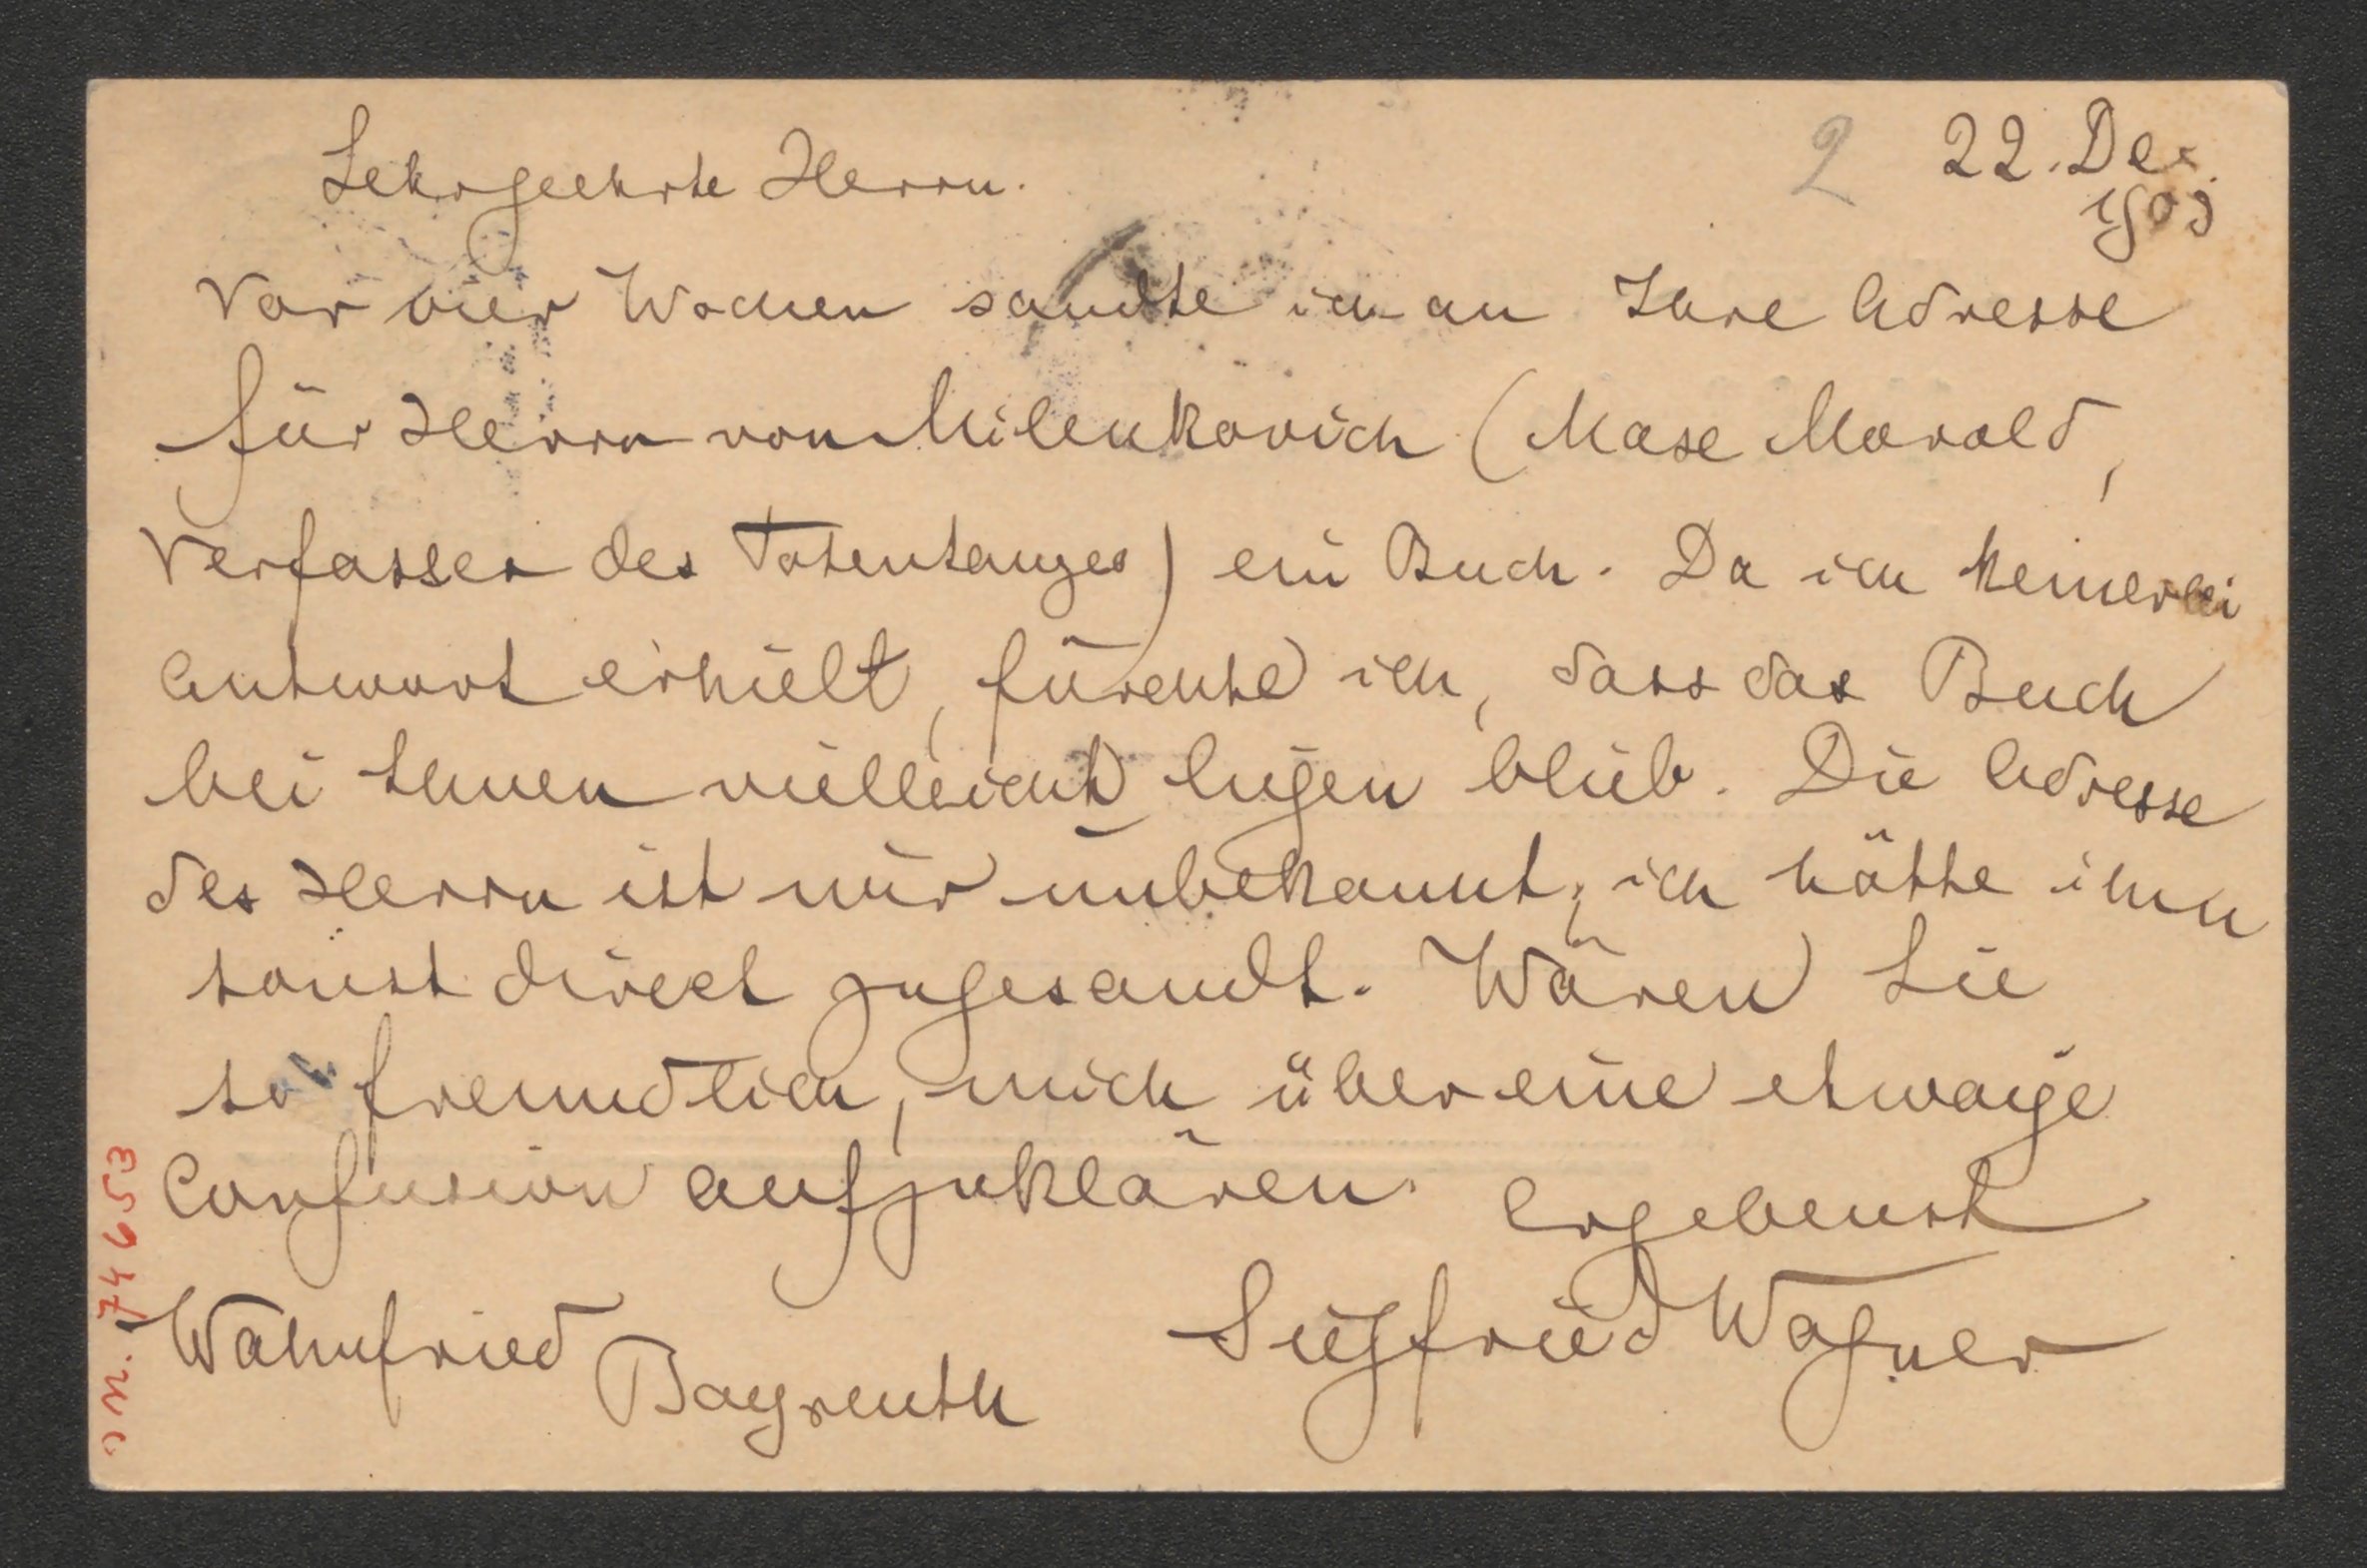 2 22. Dez.
1903
Sehrgeehrte Herrn.
Vor vier Wochen sandte ich an Ihre Adresse
für Herrn von Milenkovich (Maxe Morold,
Verfasser des Totentanzes) ein Buch. Da ich keinerlei
Antwort erhielt, fürchte ich, dass das Buch
bei Ihnen vielleicht liegen blieb. Die Adresse
des Herrn ist mir unbekannt; ich hätte ihm
sonst direct zugesandt. Wären Sie
so freundlich, mich über eine etwaige
Confusion aufzuklären.
Ergebenst
Siegfried Wagner
Wahnfried
Bayreuth
N. 74653